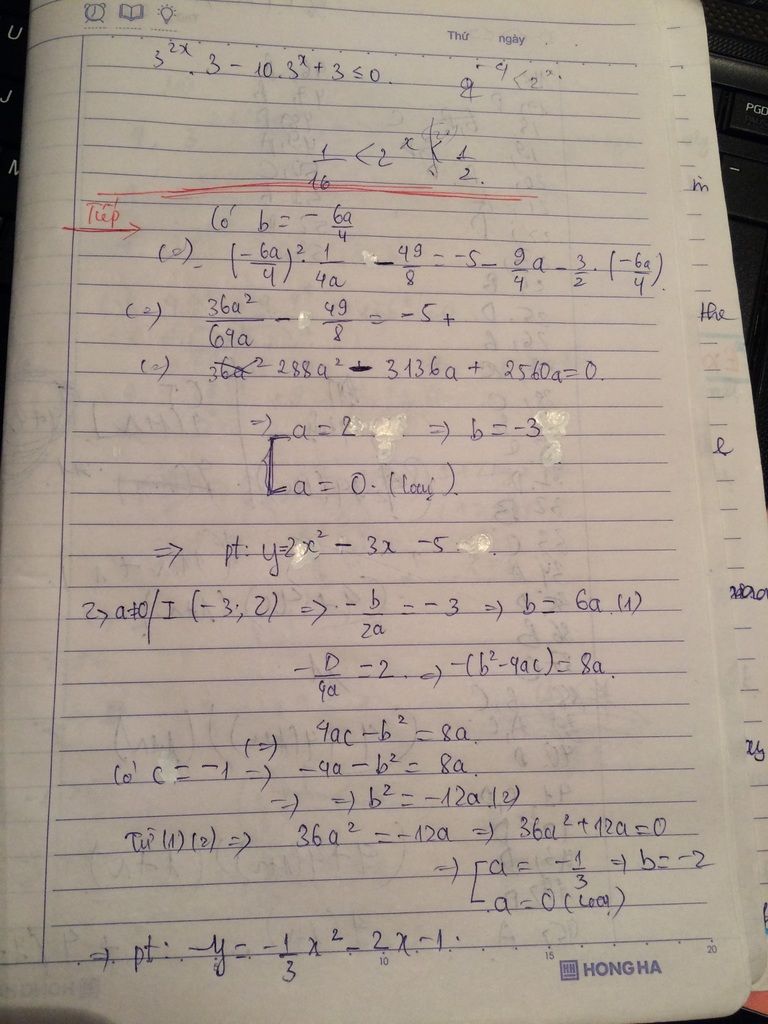 Thứ ngày
3^{2x}.3 - 10.3^x + 3 ≤ 0.
1/16 < 2^x < 1/2.
Tiếp
Có b = - 6a/4
(=) (-6a/4)^2 . 1/4a - 49/8 = -5 - 9/4 a - 3/2 . (-6a/4)
(=) 36a^2/64a - 49/8 = -5 +
(=) 288a^2 - 3136a + 2560a = 0.
=> a = 2 => b = -3
a = 0. (loại).
=> pt: y=2x^2 - 3x - 5
2> a≠0/ I (-3; 2) => - b/2a = -3 => b = 6a (1)
- D/4a = 2 => -(b^2 - 4ac) = 8a.
(=) 4ac - b^2 = 8a.
Có c = -1 => -4a - b^2 = 8a.
=> => b^2 = -12a (2)
Từ (1) (2) => 36a^2 = -12a => 36a^2 + 12a = 0
=> a = -1/3 => b = -2
a = 0 (loại)
=> pt: y = -1/3 x^2 - 2x - 1.
10 15 20
HONG HA
U
J
PGD
the
xy